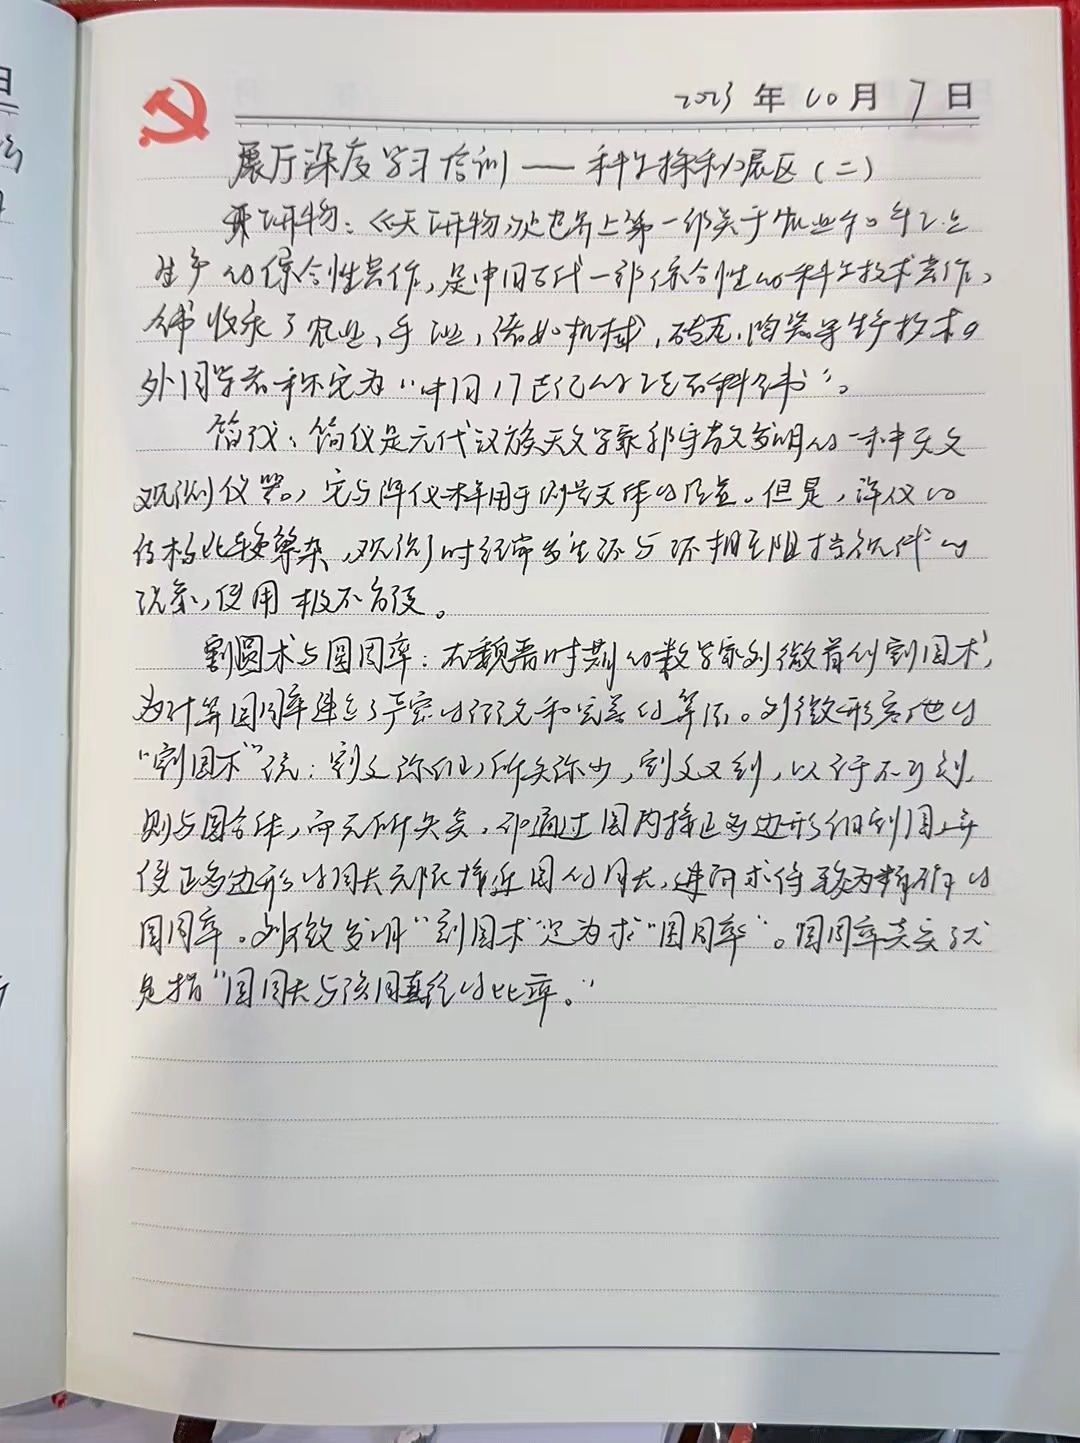 2023年10月7日
展厅深度学习培训——科学探秘展区(二)
天工开物:《天工开物》是世界上第一部关于农业和手工业
生产的综合性著作,是中国古代一部综合性的科学技术著作,
全书收录了农业、手工业,诸如机械,砖瓦、陶瓷等生产技术。
外国学者称它为“中国17世纪的工艺百科全书”。
简仪:简仪是元代汉族天文学家郭守敬发明的一种天文
观测仪器。,它与浑仪一样用于测量天体的位置。但是,浑仪的
结构比较繁杂,观测时经常发生环与环相互阻挡视线的
现象,使用极不方便。
割圆术与圆周率:在魏晋时期的数学家刘徽首创割圆术,
为计算圆周率建立了严密的理论和完善的算法。刘徽形容他的
“割圆术”说:割之弥细,所失弥少,割之又割,以至于不可割,
则与圆合体,而无所失矣,即通过圆内接正多边形细割圆,并
使正多边形的周长无限接近圆的周长,进而求得较为精确的
圆周率。刘徽发明“割圆术”是为求“圆周率”。圆周率其实就
是指“圆周长与该圆直径的比率。”